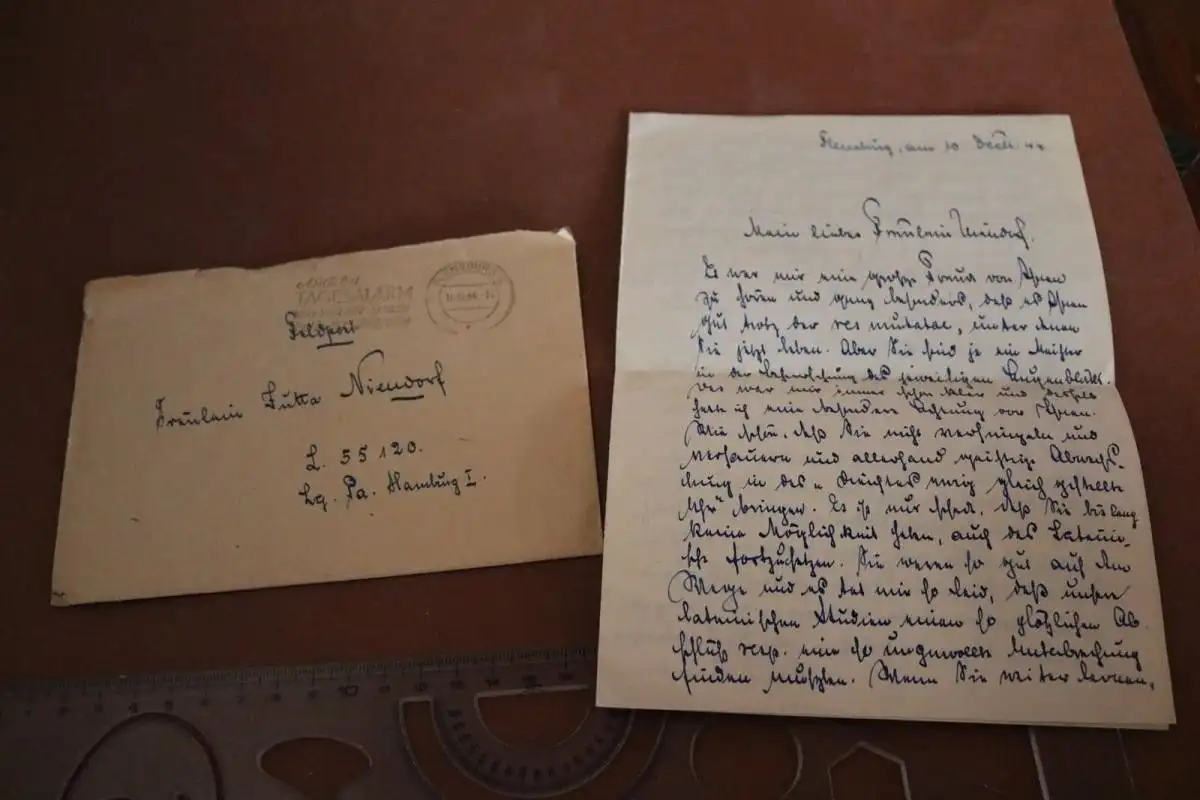 TAGESALARM
Feldpost
Fräulein Jutta Niendorf
L. 55120.
Lg. Pa. Hamburg I.
Flensburg, am 10 Dech. 44
Mein liebes Fräulein Niendorf.
Es war mir eine große Freude von Ihnen
zu hören und ganz besonders, daß es Ihnen
gut trotz der res mutatae, unter denen
Sie jetzt leben. Aber Sie sind ja ein Meister
in der Beherrschung des jeweiligen Augenblicks.
Das war mir immer schon klar und deshalb
hatte ich eine besondere Achtung vor Ihnen.
Wie schön, daß Sie nicht
versauern und allerhand geistige Abwechs-
lung in des „ ewig gleich gestellte
Uhr" bringen. Es ist nur schade, daß Sie bislang
keine Möglichkeit haben, auch das Lateini-
sche fortzusetzen. Sie waren so gut auf dem
Wege und es tat mir so leid, daß unsere
lateinischen Studien einen so plötzlichen Ab-
schluß resp. eine so ungewollte Unterbrechung
finden mußten. Wenn Sie weiter lernen,